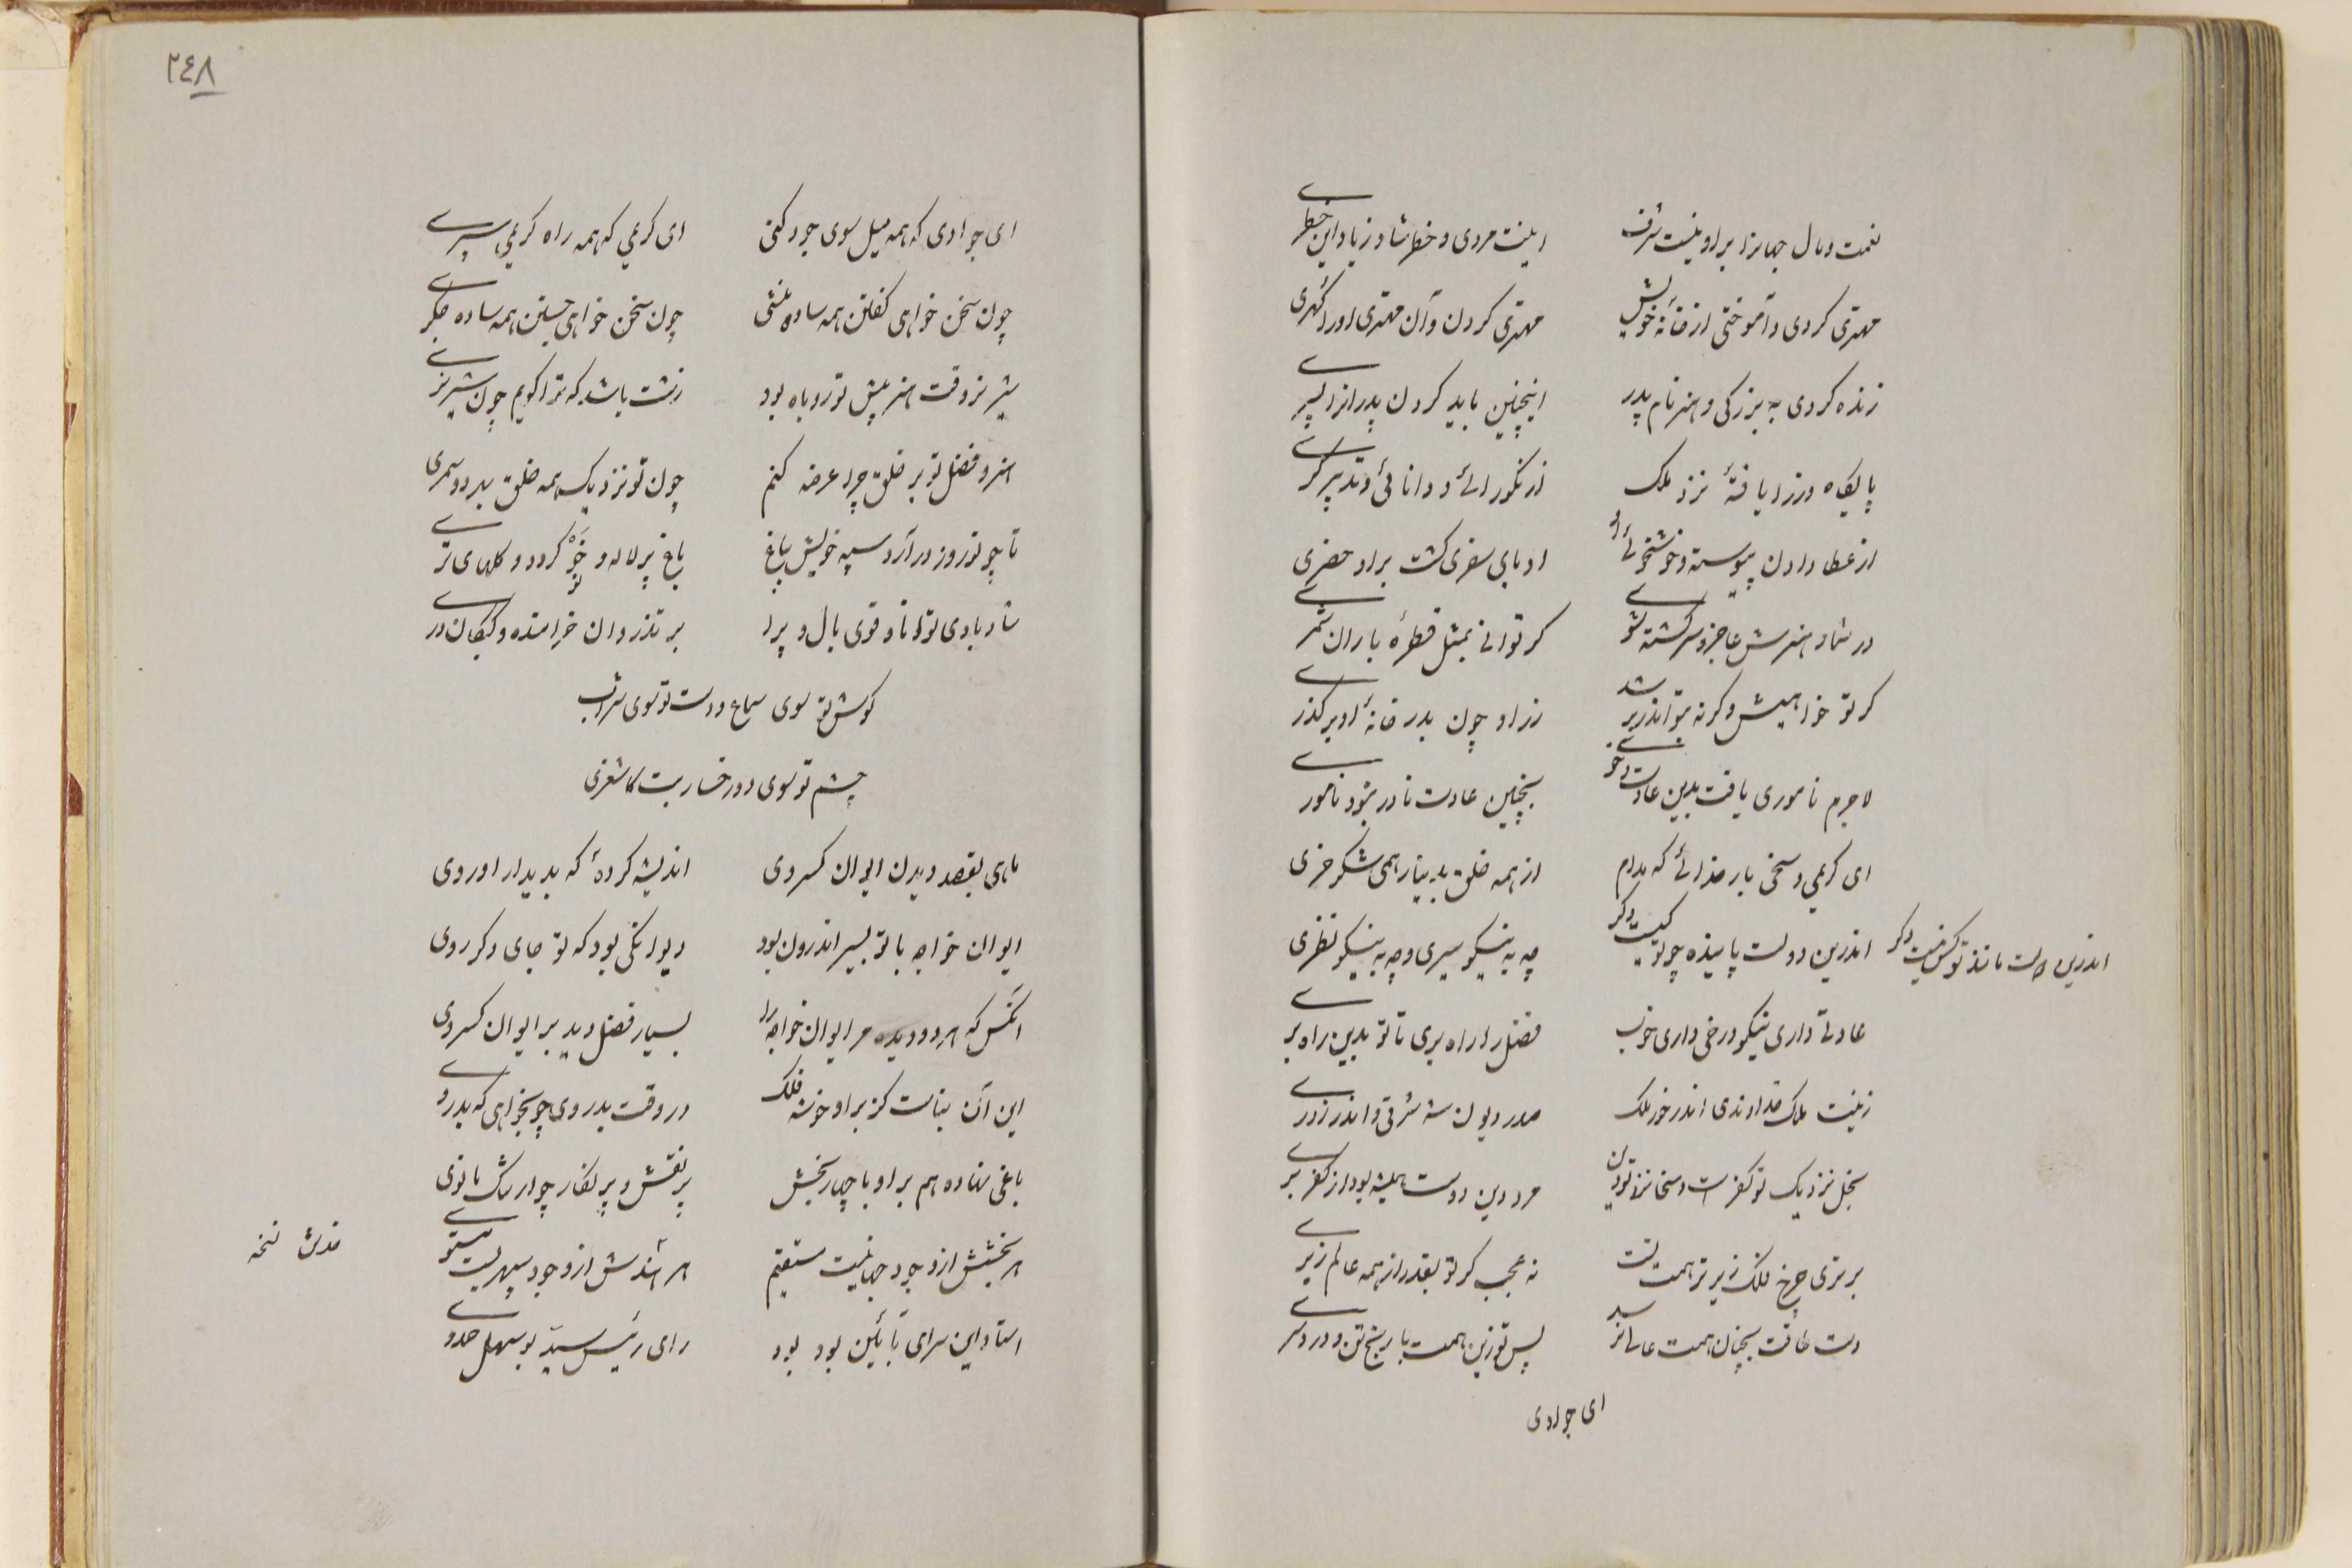 نعمت و مال جهانرا بر او نیست شرف
اینت مردی و خطر شاد زیاد این خطری
مهتری کردی و آموختی از خانهٔ خویش
مهتری کردن و آن مهتری او را گهری
زنده کردی به بزرگی و هنر نام پدر
اینچنین باید کردن پدرانرا پسری
پایگاه و رزا یافتهٔ نزد ملک
از نکورائی و دانائی و تدبیرگری
از عطا دادن پیوسته و خوشخوئی او
ادبای سفری گشت بر او حضری
در شمار هنرش عاجز و سرگشته شوی
گر توانی بمثل قطرهٔ باران شمری
گر تو خواهیش وگرنه بتو اندر برسد
زر او چون بدر خانهٔ او برگذری
لاجرم ناموری یافت بدین عادت و خوی
بچنین عادت نادر بتود ناموری
ای کریمی و سخی بار خدائی که مدام
از همه خلق بدینار همی شکر خری
اندرین دولت مانند تو کس نیست دگر
اندرین دولت پاینده چو تو کیست دگر
چه به نیکو سیری و چه به نیکو نظری
عادتی داری نیکو و رخی داری خوب
فضل را راه بری تا تو بدین راه بری
زینت ملک خداوندی اندر خور ملک
صدر دیوان شه شرقی و اندر خوری
بخل نزدیک تو کفرست و سخا نزد تو دین
مرد دین دوست همیشه بود از کفر بری
برتری چرخ فلک زیر تر همت تست
نه عجب گر تو بقدر از همه عالم زبری
دست طاقت بچنان همت عالی نرسد
پس تو زین همت با رنج تن و درد سری
ای جوادی
۲۴۸
ای جوادی که همه میل سوی جود کنی
ای کریمی که همه راه کریمی سپری
چون سخن خواهی گفتن همه ساده منشی
چون سخن خواهی جستن همه ساده جگری
شیر نر وقت هنر پیش تو روباه بود
زشت باشد که ترا گویم چون شیر نری
هنر و فضل تو بر خلق چرا عرضه کنم
چون تو نزدیک همه خلق بدو در سمری
تا چو نوروز در آرد سپه خویش بباغ
باغ پر لاله و خَوْ گردد و گلهای تری
شاد بادی و توانا و قوی بال و پر
بر تذروان خرامنده و کبکان دری
گوش تو سوی سماع و دست تو سوی شراب
چشم تو سوی دو رخسار بت کاشغری
ماهی بقصد دیدن ایوان کسروی
اندیشه کردهٔ که بدیدار او روی
ایوان خواجه با تو بشهر اندرون بود
دیوانگی بود که تو جای دگر روی
آنکس که هر دو دیده مر ایوان خواجه را
بسیار فضل دید بر ایوان کسروی
این آن بناست کز بر او خوشه فلک
در وقت بدروی چو بخواهی که بدروی
باغی نهاده هم بر او با چهار بخش
پر نقش و پر نگار چو ارتنگ مانوی
هر بخشش از وجود جهانیست مستقیم
هر آبدش از وجود سپهریست مستوی
خدش نسخه
استاد این سرای بآئین بود بود
رای رئیس سید بوسهل حمدوی